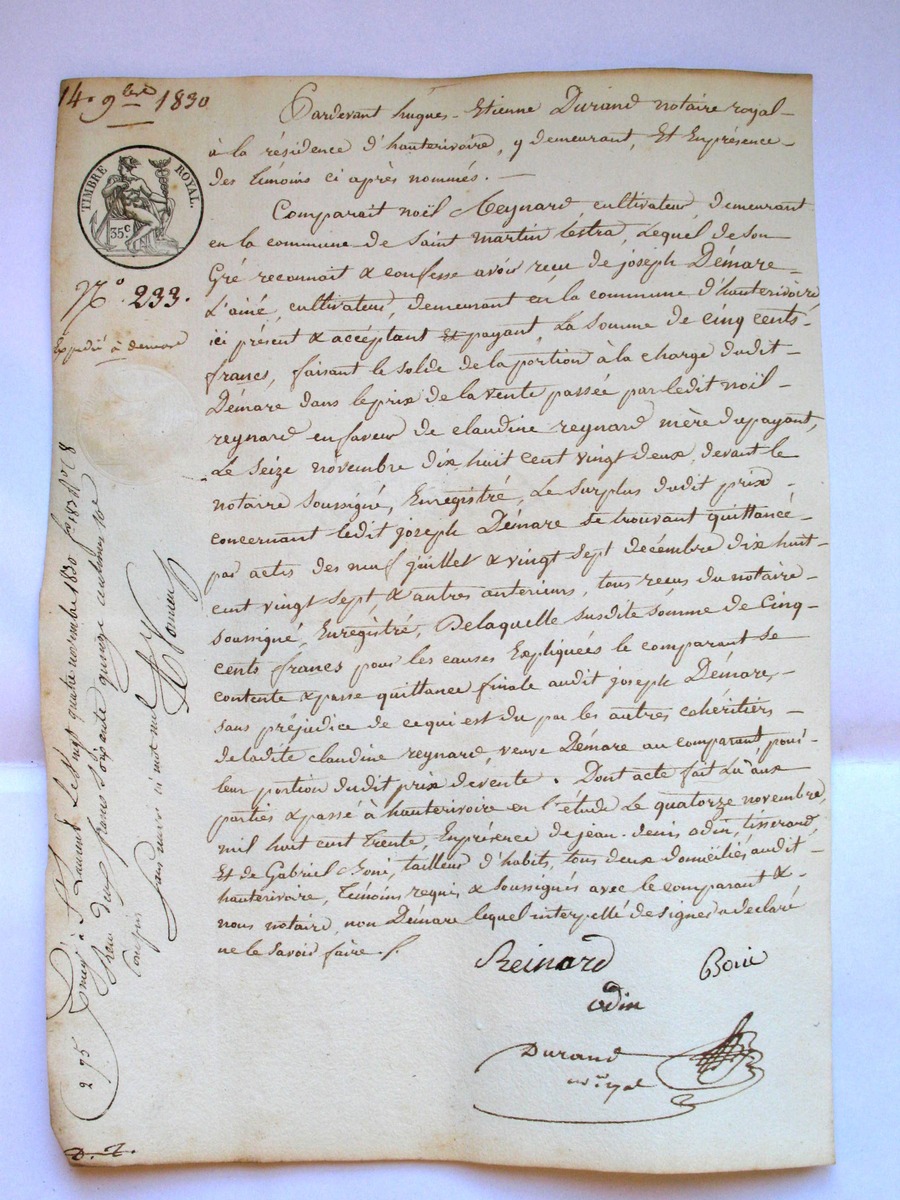 14. 9bre 1830
TIMBRE ROYAL.
35c
N° 233.
Expédié à démare
Pardevant hugues-Etienne Durand notaire royal
à la résidence d'hauterivoire, y demeurant, Et Enprésence
des témoins ci après nommés. —
Comparait noël Reynard cultivateur, demeurant
en la commune de Saint martin Lestra, Lequel de son
Gré reconnoit & confesse avoir reçu de joseph Démare
L'ainé, cultivateur, demeurant en la commune d'hauterivoire,
ici présent & acceptant Et payant, La somme de cinq cents
francs, faisant le solde de la portion à la charge dudit
Démare dans le prix de la vente passée par ledit noël
reynard en faveur de claudine reynard mère du payant,
Le seize novembre dix huit cent vingt deux, devant le
notaire soussigné, Enregistré, Le surplus dudit prix
concernant ledit joseph Démare se trouvant quittancé
par actes des neuf juillet & vingt sept décembre dix huit
cent vingt sept, & autres anterieurs, tous reçus du notaire
soussigné, Enregistré, Delaquelle susdite somme de Cinq
cents francs pour les causes Expliquées le comparant se
contente & passe quittance finale audit joseph Démare,
sans préjudice de ce qui est du par les autres cohéritiers
de ladite claudine reynard, veuve Démare au comparant, pour
leur portion dudit prix de vente. Dont acte fait Lu aux
parties & passé à hauterivoire en l'étude Le quatorze novembre
mil huit cent trente, Enprésence de jean-denis odin, tisserand,
Et de Gabriel Boni, tailleur d'habits, tous deux domiciliés audit
hauterivoire, Témoins requis & soussignés avec le comparant &
nous notaire, non Démare lequel interpellé de signer a declaré
ne le savoir faire.
Reinard
Boni
odin
Durand
St Laurent Le vingt quatre novembre 1830 fo 8
deux francs cinquante quinze centimes
295
D. J.